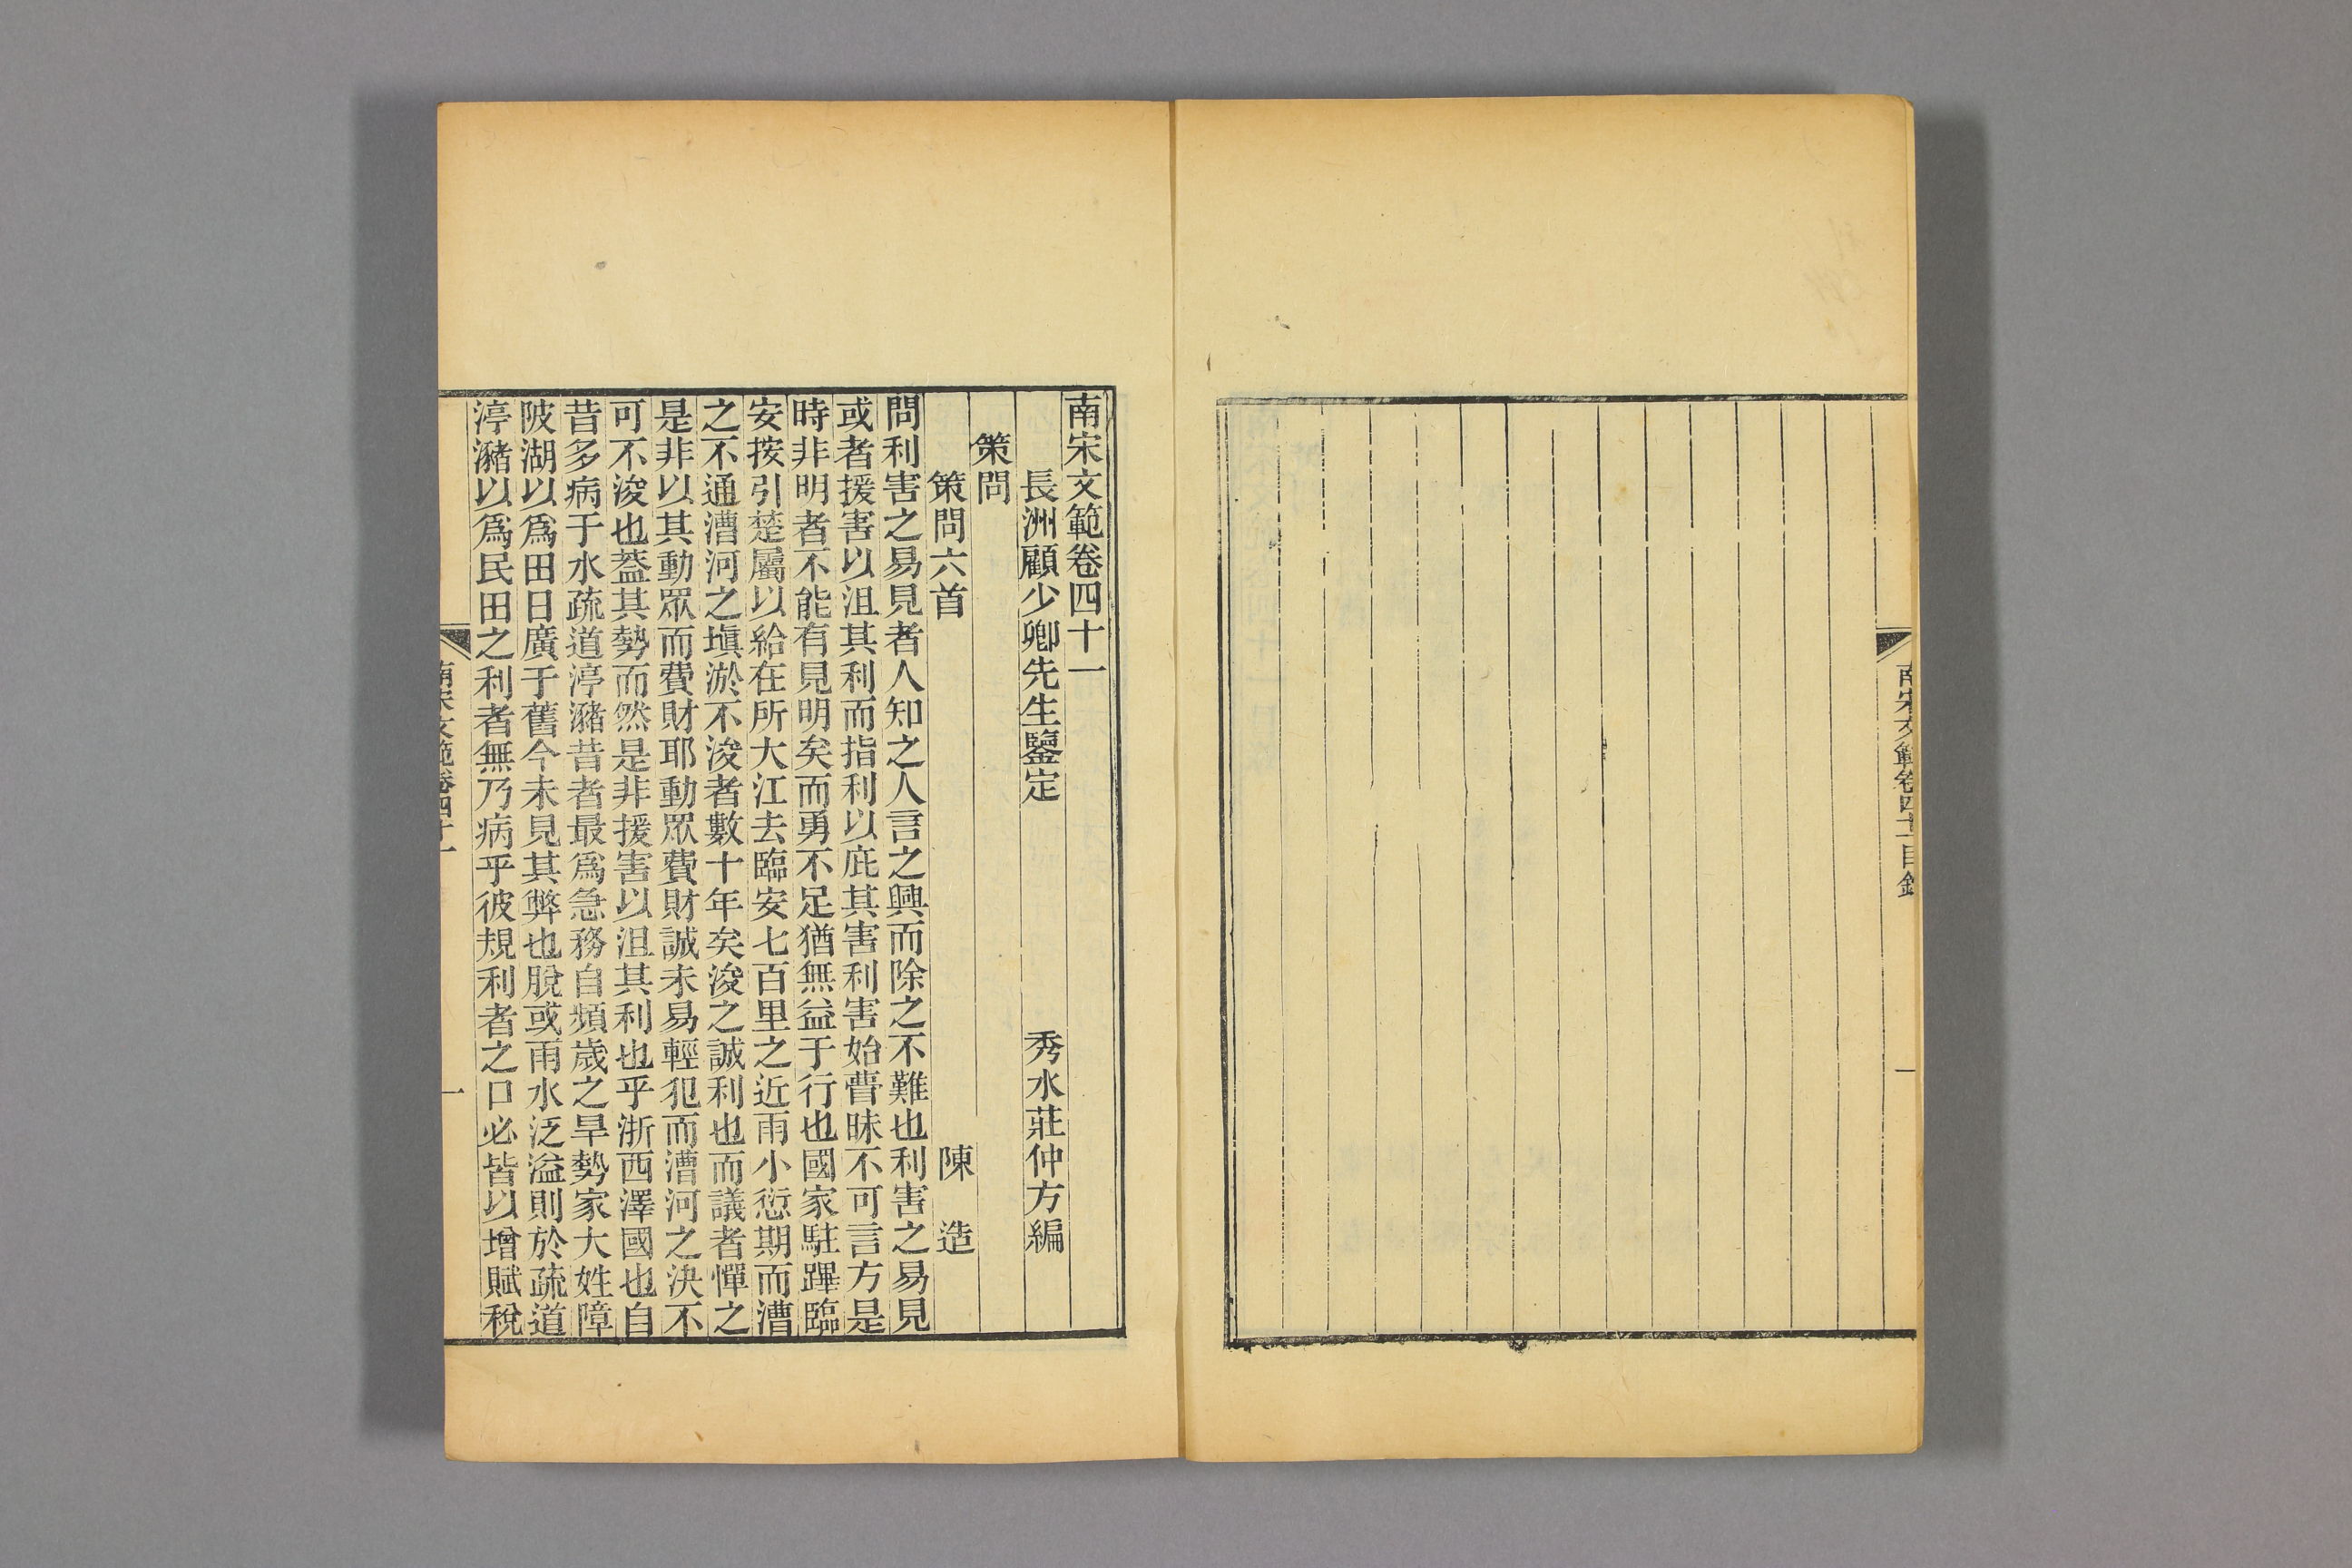 南宋文範卷四十一目錄
一
南宋文範卷四十一
長洲顧少卿先生鑒定　秀水莊仲方編
策問
策問六首　陳造
問利害之易見者人知之人言之興而除之不難也利害之易見
或者援害以沮其利而指利以庇其害利害始瞢昧不可言方是
時非明者不能有見明矣而勇不足猶無益于行也國家駐蹕臨
安按引楚屬以給在所大江去臨安七百里之近雨小愆期而漕
之不通漕河之塡淤不浚者數十年矣浚之誠利也而議者憚之
是非以其動眾而費財耶動眾費財誠未易輕犯而漕河之決不
可不浚也蓋其勢而然是非援害以沮其利也乎浙西澤國也自
昔多病于水疏道渟瀦昔者最爲急務自頻歲之旱勢家大姓障
陂湖以爲田日廣于舊今未見其弊也脫或雨水泛溢則於疏道
渟瀦以爲民田之利者無乃病乎彼規利者之口必皆以增賦稅
南宋文範卷四十一
一